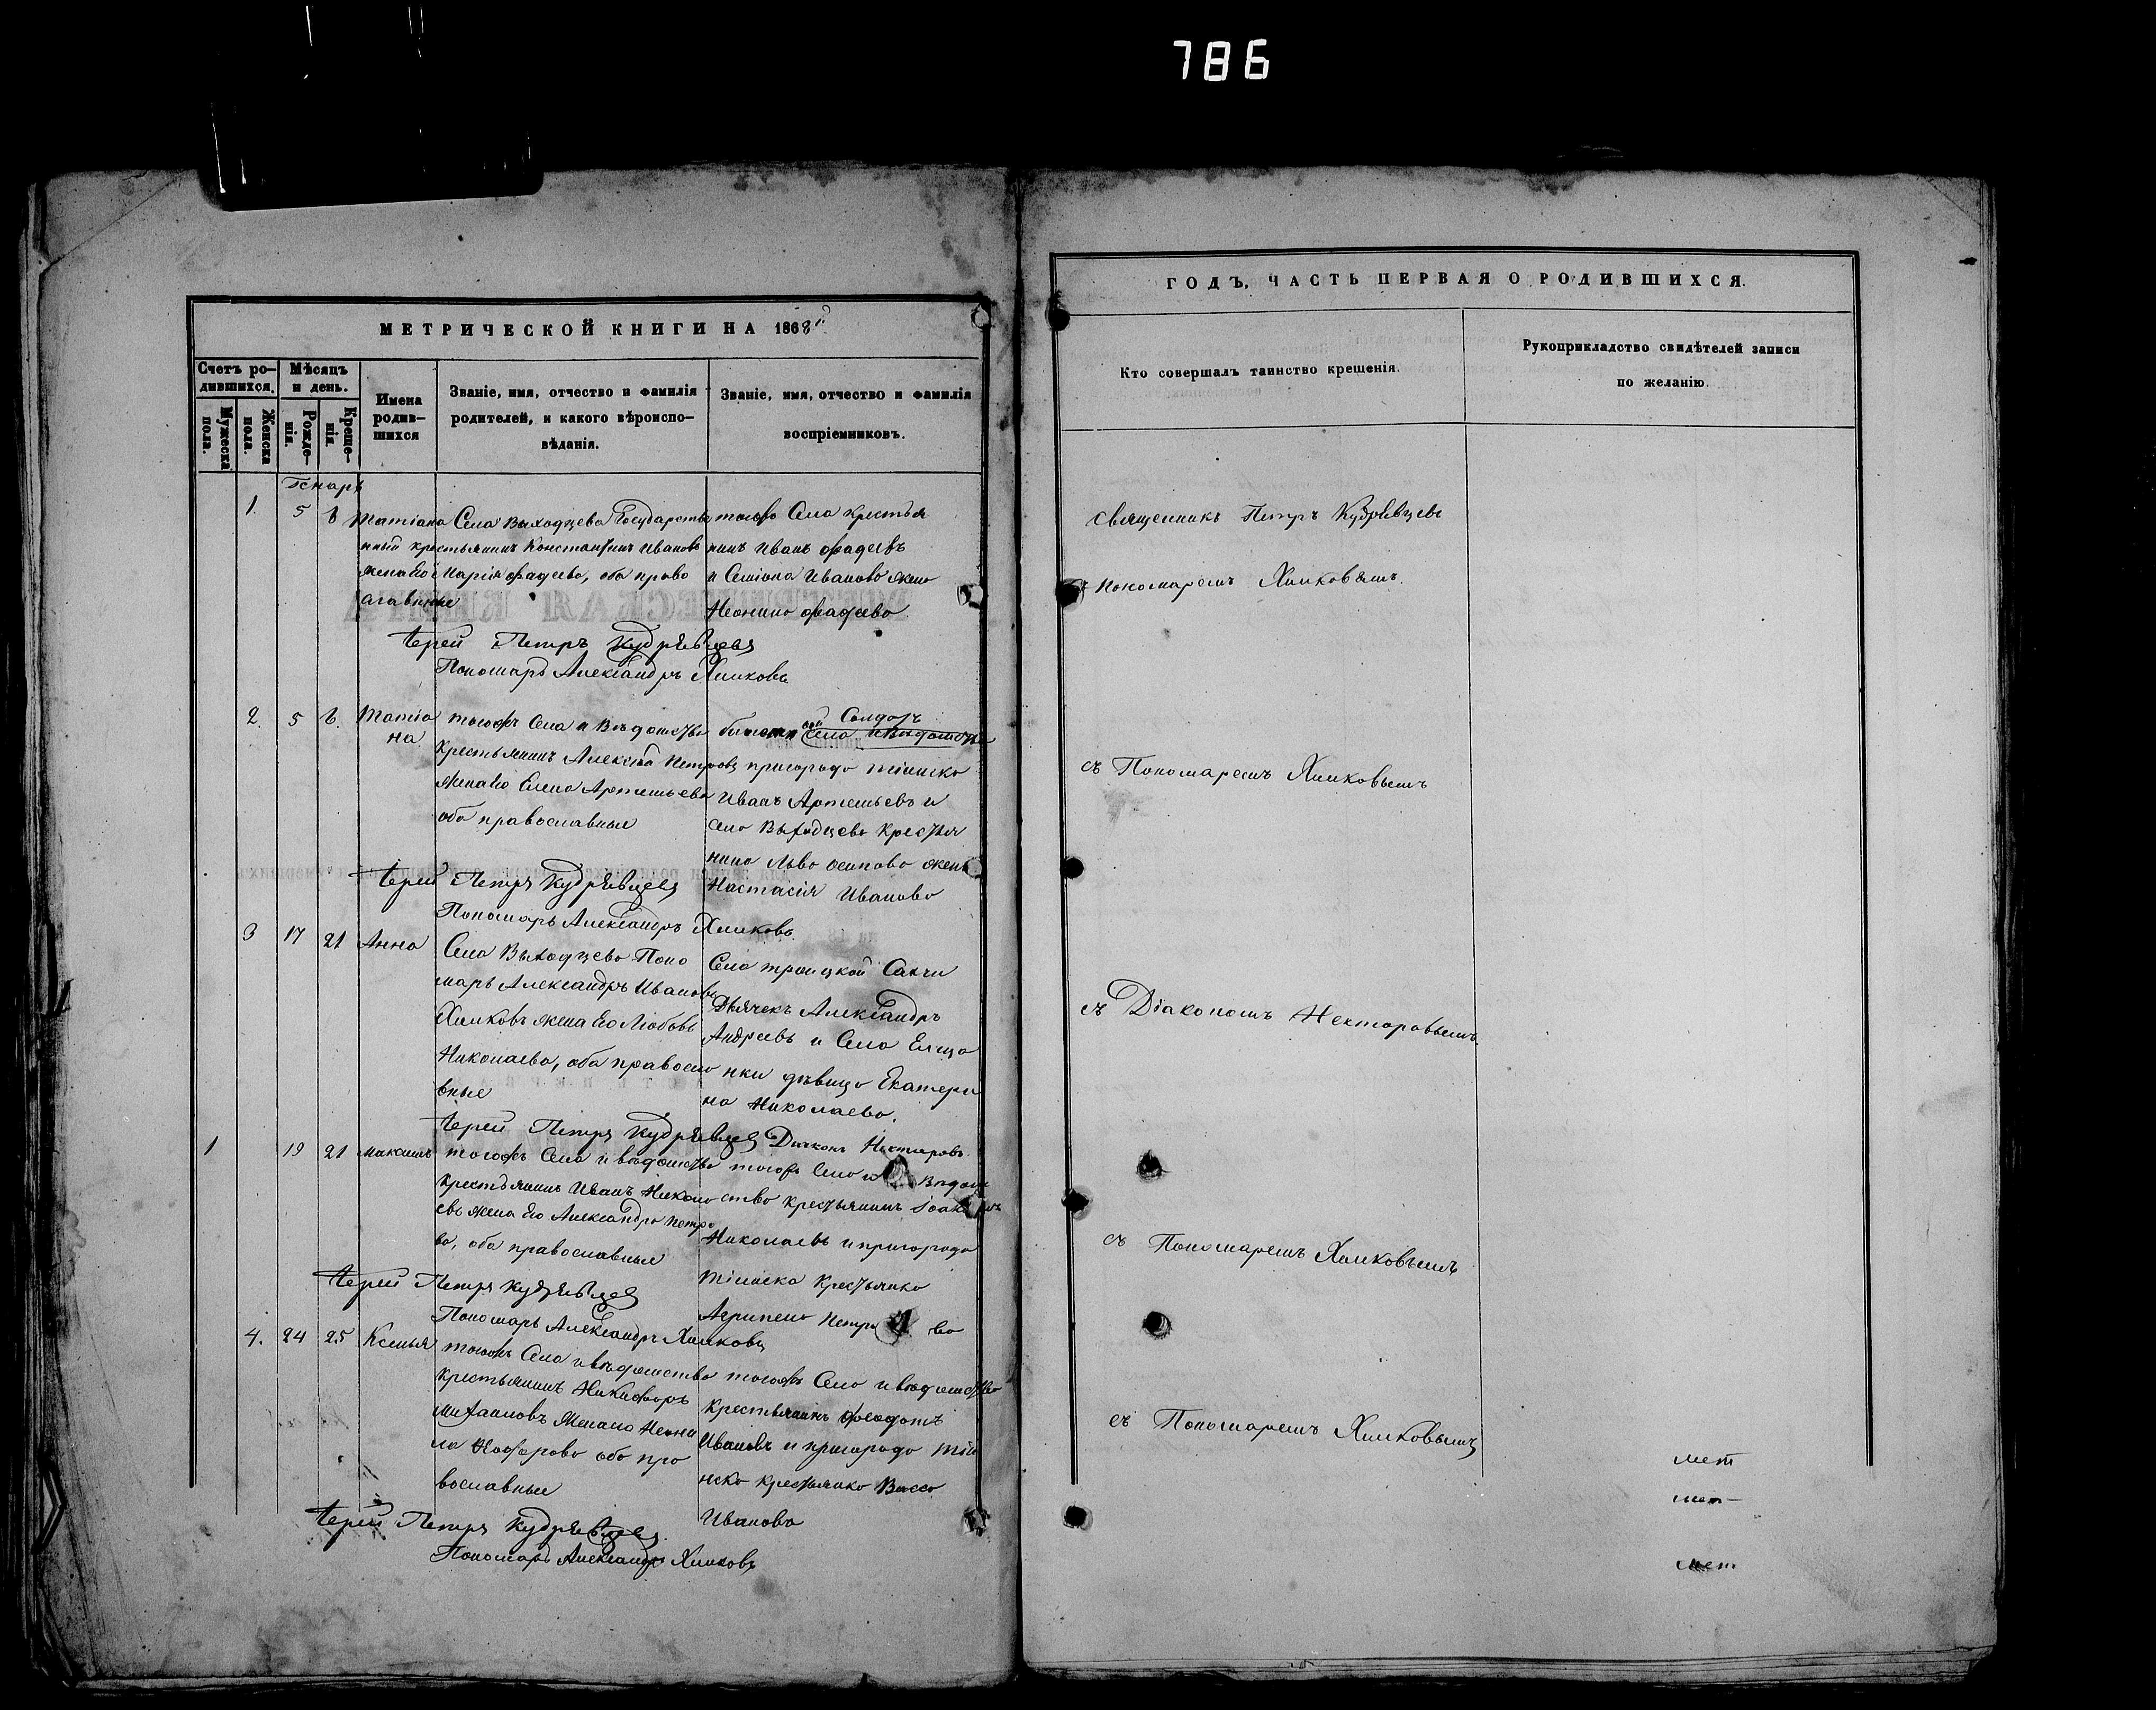 786
МЕТРИЧЕСКОЙ КНИГИ НА 1868й
Счетъ ро-
дившихся.
Мѣсяцъ
и день.
Мужеска
пола.
Женска
пола.
Рожде-
нія.
Креще-
нія.
Имена
родив-
шихся
Званіе, имя, отчество и фамилія
родителей, и какого вѣроиспо-
вѣданія.
Званіе, имя, отчество и фамилія
воспріемниковъ.
Генварь
1. 5 6 Татіана
Села Выходцева Государстве
нный крестьянинъ Константинъ Ивановъ
жена Его Марія Фадеева, оба право
славные
тогоже Села крестья
нинъ Иванъ Фадеевъ
и Иванова жена
Неонила Фадеева
Іерей Петръ Кудрявцевъ
Пономарь Александръ Хилковъ
2. 5 6. Татіа
на
тогожъ Села и Вѣдомства
крестьянинъ Алексѣй Петровъ
жена Его Елена Артемьева
оба православные
Солдатъ
Села и Вѣдомства
пригорода Тіинска
Иванъ Артемьевъ и
Села Выходцева крестья
нина Льва Осипова жена
Настасія Иванова
Іерей Петръ Кудрявцевъ
Пономарь Александръ Хилковъ
3 17 21 Анна
Села Выходцева Поно
марь Александръ Ивановъ
Хилковъ жена Его Любовь
Николаева, оба правосла
вные
Села троицкой Сахчи
Дьячекъ Александръ
Андреевъ и Села
нки дѣвица Екатери
на Николаева.
Іерей Петръ Кудрявцевъ Діаконъ Нектаровъ
1 19 21 Максимъ
тогожъ Села и вѣдомства
крестьянинъ Иванъ Никола
евъ жена Его Александра Петро
ва, оба православные
тогожъ Села и Вѣдом
ства крестьянинъ
Николаевъ и пригорода
Тіинска крестьянка
Агрипена Петрова
Іерей Петръ Кудрявцевъ
Пономарь Александръ Хилковъ
4. 24 25 Ксенья
тогожъ Села и вѣдомства
крестьянинъ Никифоръ
Михаиловъ Жена Его Неони
ла оба пра
вославные
тогожъ Села и вѣдомства
крестьянинъ Феодотъ
Ивановъ и пригорода Тіи
нска крестьянка Васса
Иванова
Іерей Петръ Кудрявцевъ.
Пономарь Александръ Хилковъ
ГОДЪ, ЧАСТЬ ПЕРВАЯ О РОДИВШИХСЯ.
Кто совершалъ таинство крещенія.
Рукоприкладство свидѣтелей записи
по желанію.
Священникъ Петръ Кудрявцевъ
съ Пономаремъ Хилковымъ.
съ Пономаремъ Хилковымъ
съ Діакономъ Нектаровымъ.
съ Пономаремъ Хилковымъ
съ Пономаремъ Хилковымъ